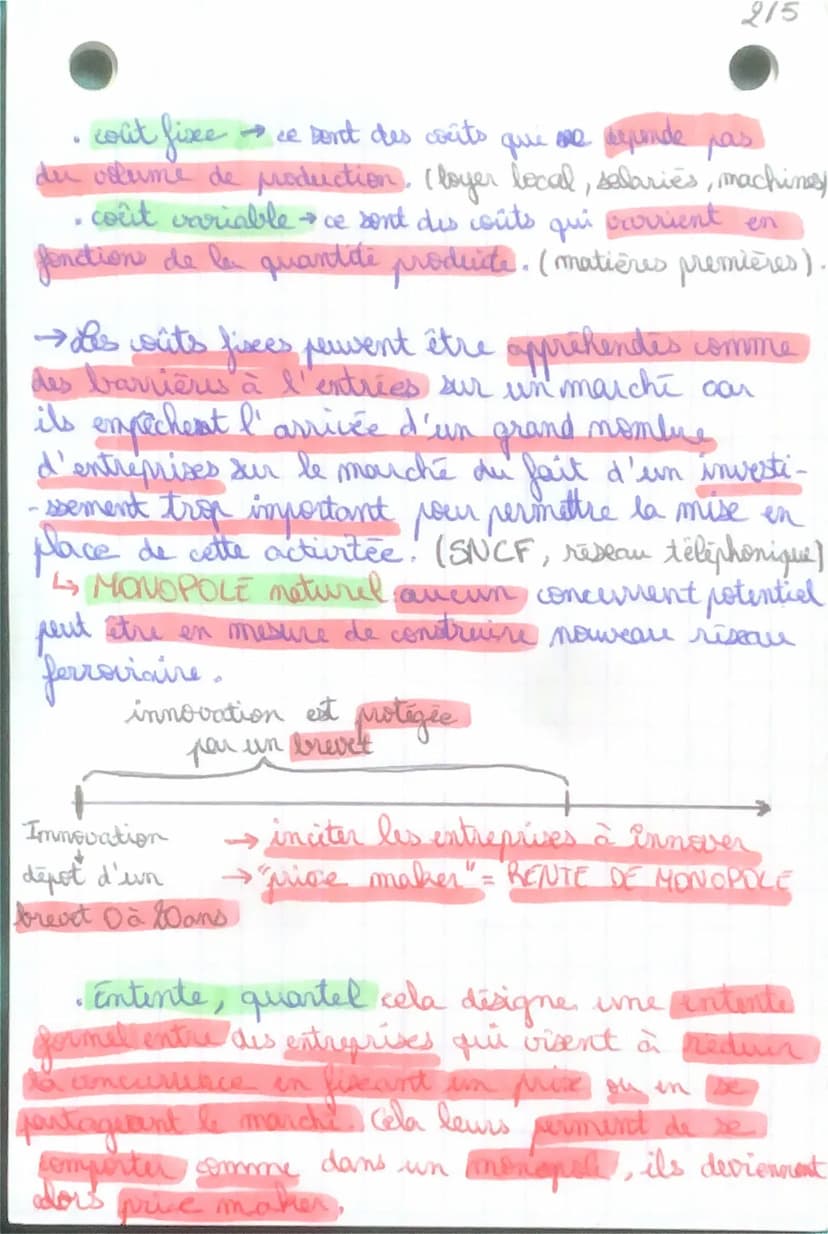 2/5
. coût fixe → ce sont des coûts que ne depende pas
du volume de production. (loyer local, salariés, machines)
. coût variable → ce sont des coûts qui varrient en
fonctions de la quantité produite. (matières premières).
→ Les coûts fixes peuvent être appréhendés comme
des barrières à l'entrées sur un marché car
ils empêchent l'arrivée d'un grand nombre
d'entreprises sur le marché du fait d'un investi-
-ssement trop important pour permettre la mise en
place de cette activitée. (SNCF, réseau téléphonique)
↳ MONOPOLE naturel aucun concurrent potentiel
peut être en mesure de construire nouveau réseau
ferroviaire.
innovation est protégée
par un brevet
Innovation → inciter les entreprises à innover
↓
dépot d'un → "price maker" = RENTE DE MONOPOLE
brevet 0 à 20 ans
. Entente, quartel cela désigne une entente
formel entre des entreprises qui visent à réduire
la concurrence en fixant un prix ou en se
partageant le marché. Cela leurs perment de se
comporter comme dans un monopole, ils deviennent
alors price maker.